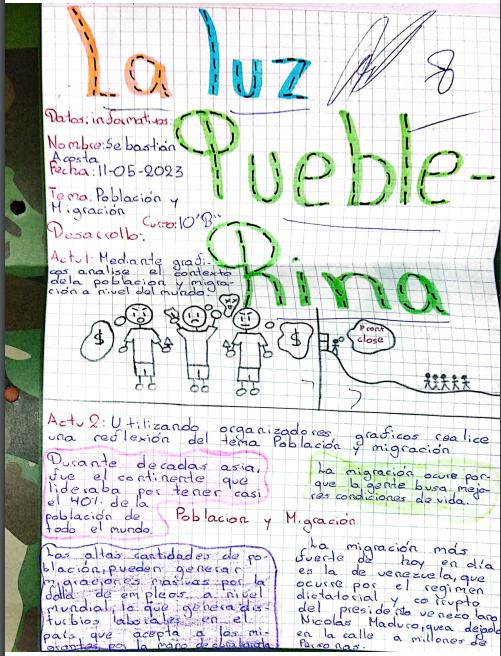 La luz
8
Pueble-
Rina
Datos informativos
Nombre: Sebastián
Acosta
Fecha: 11-05-2023
Tema: Población y
Migración
Curso: 10 "B"
Desarrollo:
Actv 1: Mediante grafi-
cos analise el contexto
de la poblacion y migra-
ción a nivel del mundo.
$
$
Front
close
Actv 2: Utilizando organizadores graficos realice
una reflexión del tema Población y migración
Durante decadas asia,
fue el continente que
lideraba por tener casi
el 40% de la
población de
todo el mundo.
La migración ocure por-
que la gente busa mejo-
res condiciones de vida.
Poblacion y Migración
Las altas cantidades de po-
blación, pueden generar
migraciones masivas por la
falta de empleos a nivel
mundial, lo que genera dis-
turbios laborales en el
país, que acepta a los mi-
grantes por la mano de obra
La migración más
fuerte de hoy en día
es la de venezuela, que
ocurre por el regimen
dictatorial y corrupto
del presidente venezolano
Nicolas Maduro, que a dejado
en la calle a millones de
Personas.